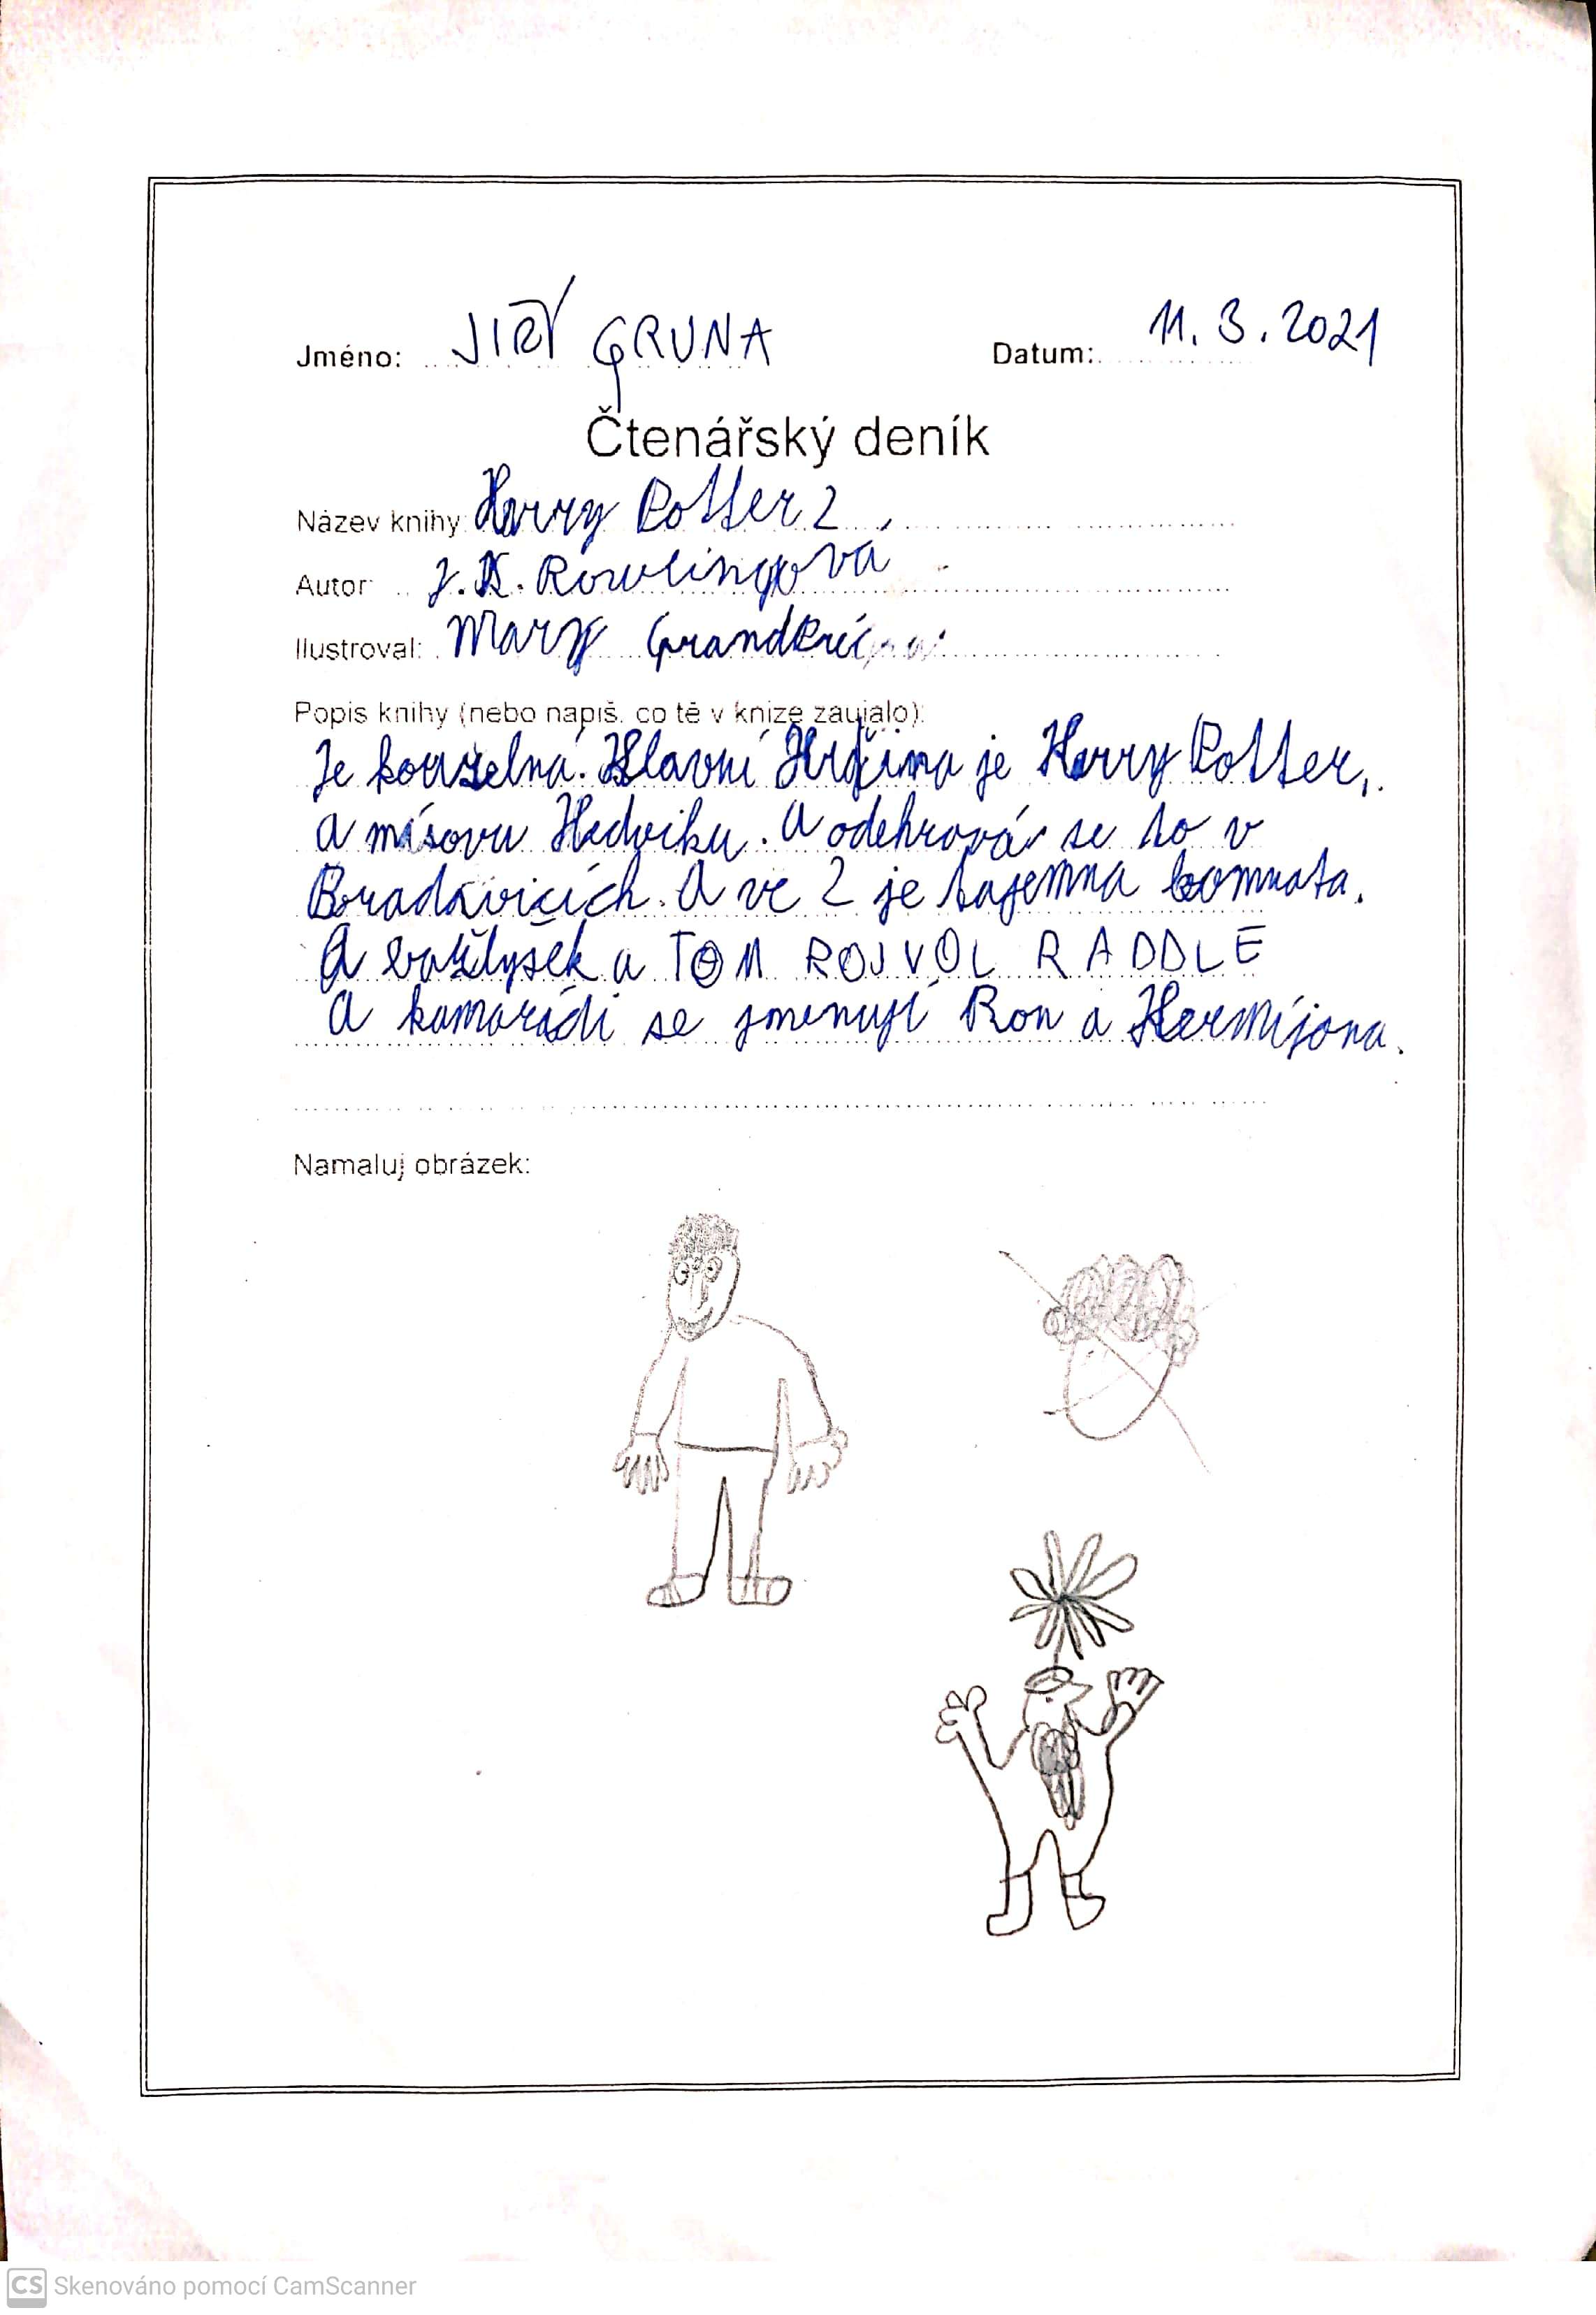 Jméno: JIŘÍ GRUNA Datum: 11. 3. 2021
Čtenářský deník
Název knihy: Harry Potter 2
Autor J.K. Rowlingová
Ilustroval: Mary
Popis knihy (nebo napiš, co tě v knize zaujalo):
Je kouzelná. Hlavní Hrdina je Harry Potter,
a má sovu Hedviku. A odehrává se to v
Bradavicích. A ve 2 je tajemna komnata.
A bazilyšek a TOM ROJVOL RADDLE
A kamarádi se jmenují Ron a Hermijona.
Namaluj obrázek:
CS Skenováno pomocí CamScanner